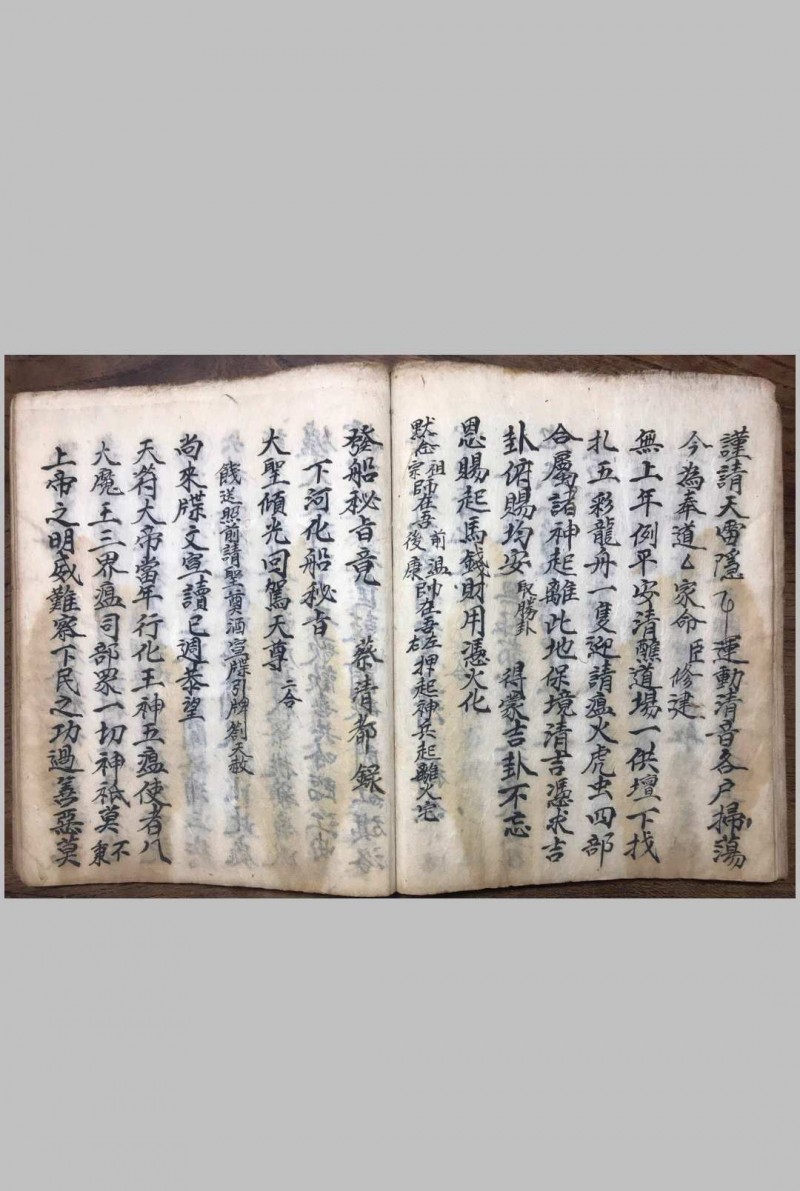 謹請天雷隱卩運動清音各戶掃蕩
今為奉道厶家命臣修建
無上年例平安清醮道場一供壇下找
扎五彩龍舟一隻迎請瘟火虎虫四部
合屬諸神起離此地保境清吉憑求吉
卦俯賜均安 取勝卦 得蒙吉卦不忘
恩賜起馬錢財用憑火化
默念祖師在吾前溫帥在吾左押起神兵起離火完
宗師在吾後康帥在吾右
發船秘旨竟 蔡清都錄
下河化船秘旨
大聖傾光回駕天尊 二合
餞送照前請聖奠酒宣牒引牌劄天赦
尚來牒文宣讀已週恭望
天符大帝當年行化王神五瘟使者八
大魔王三界瘟司部眾一切神祇莫不秉
上帝之明威難察下民之功過善惡莫